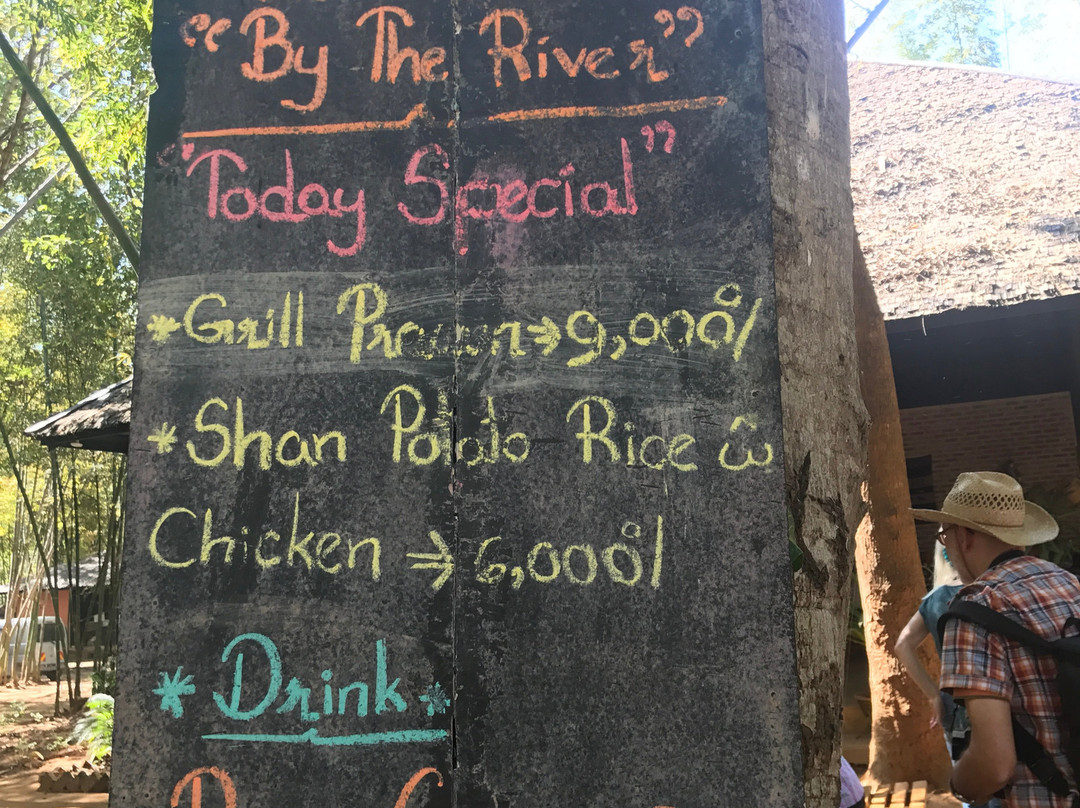 “By The River”
“Today Special”
*Grill Prawn→9,000/
*Shan Potato Rice ω̂
Chicken →6,000/
*Drink*